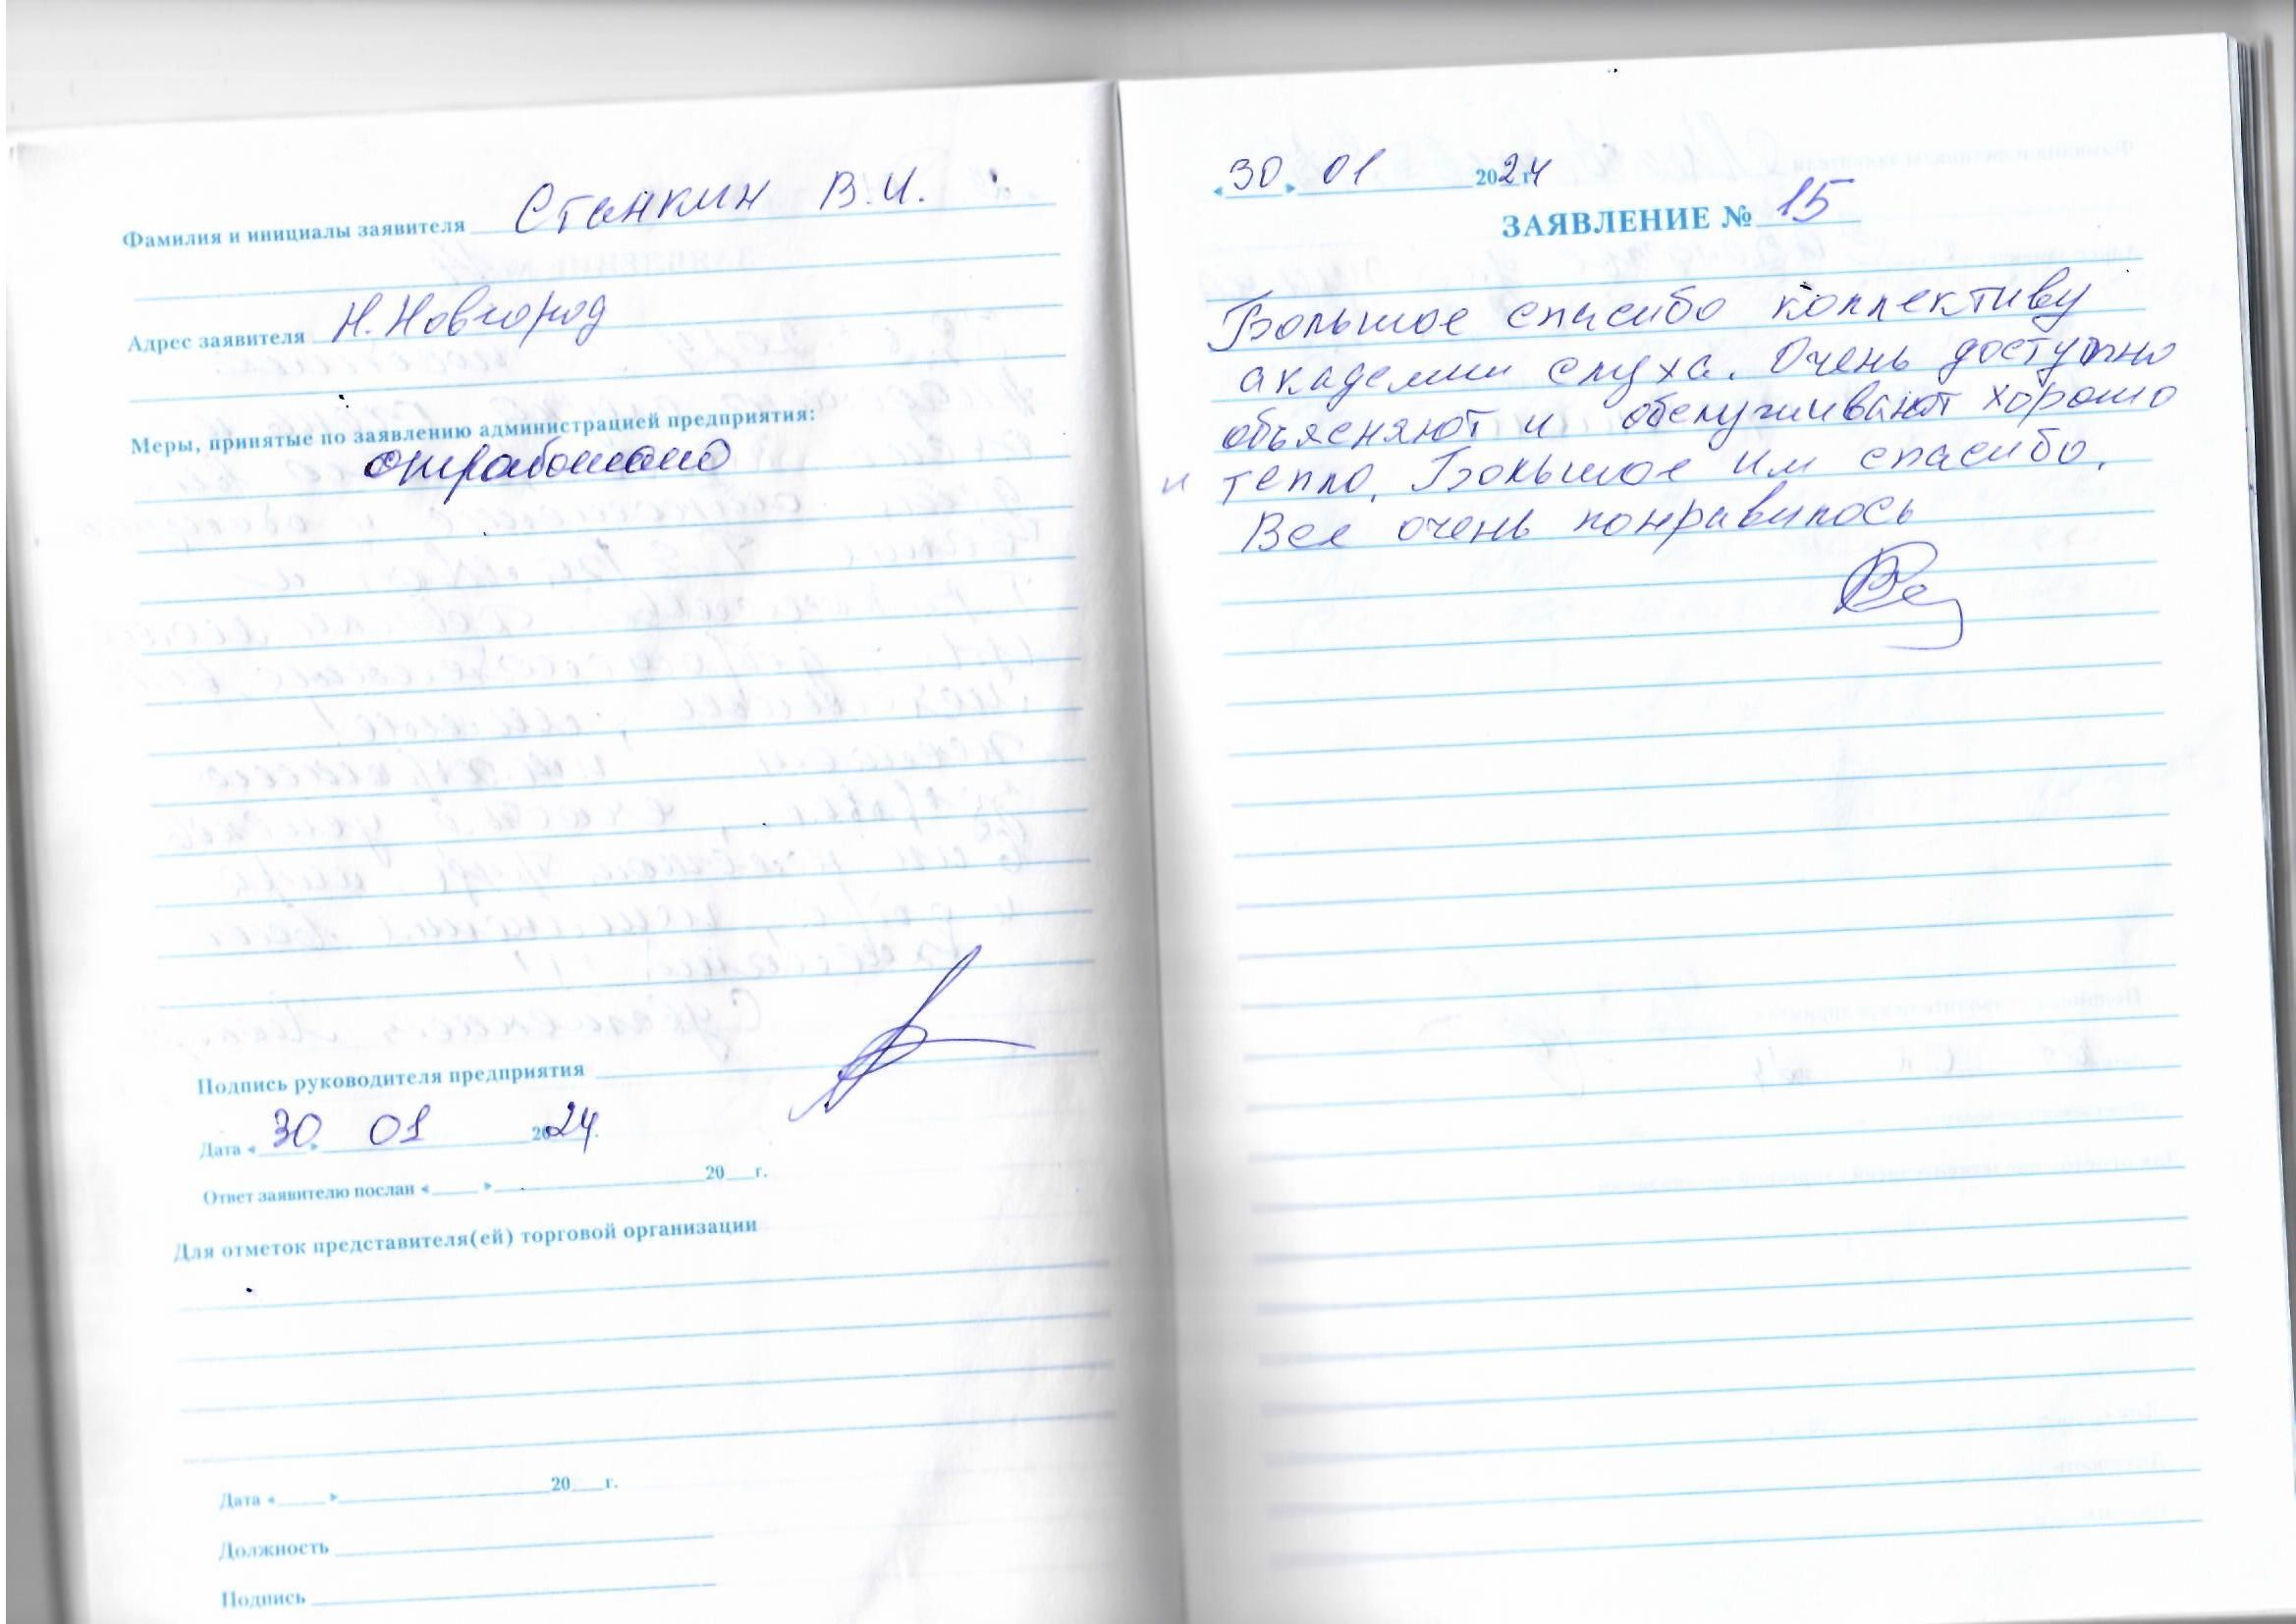 Фамилия и инициалы заявителя Станкин В.И.
Адрес заявителя Н.Новгород
Меры, принятые по заявлению администрацией предприятия:
отработано
Подпись руководителя предприятия
Дата «30» 01 2024.
Ответ заявителю послан «___» ___ 20__г.
Для отметок представителя(ей) торговой организации
Дата «___» ___ 20__г.
Должность
Подпись
«30» 01 2024
ЗАЯВЛЕНИЕ № 15
Большое спасибо коллективу
академии слуха. Очень доступно
объясняют и обслуживают хорошо
и тепло. Большое им спасибо.
Все очень понравилось